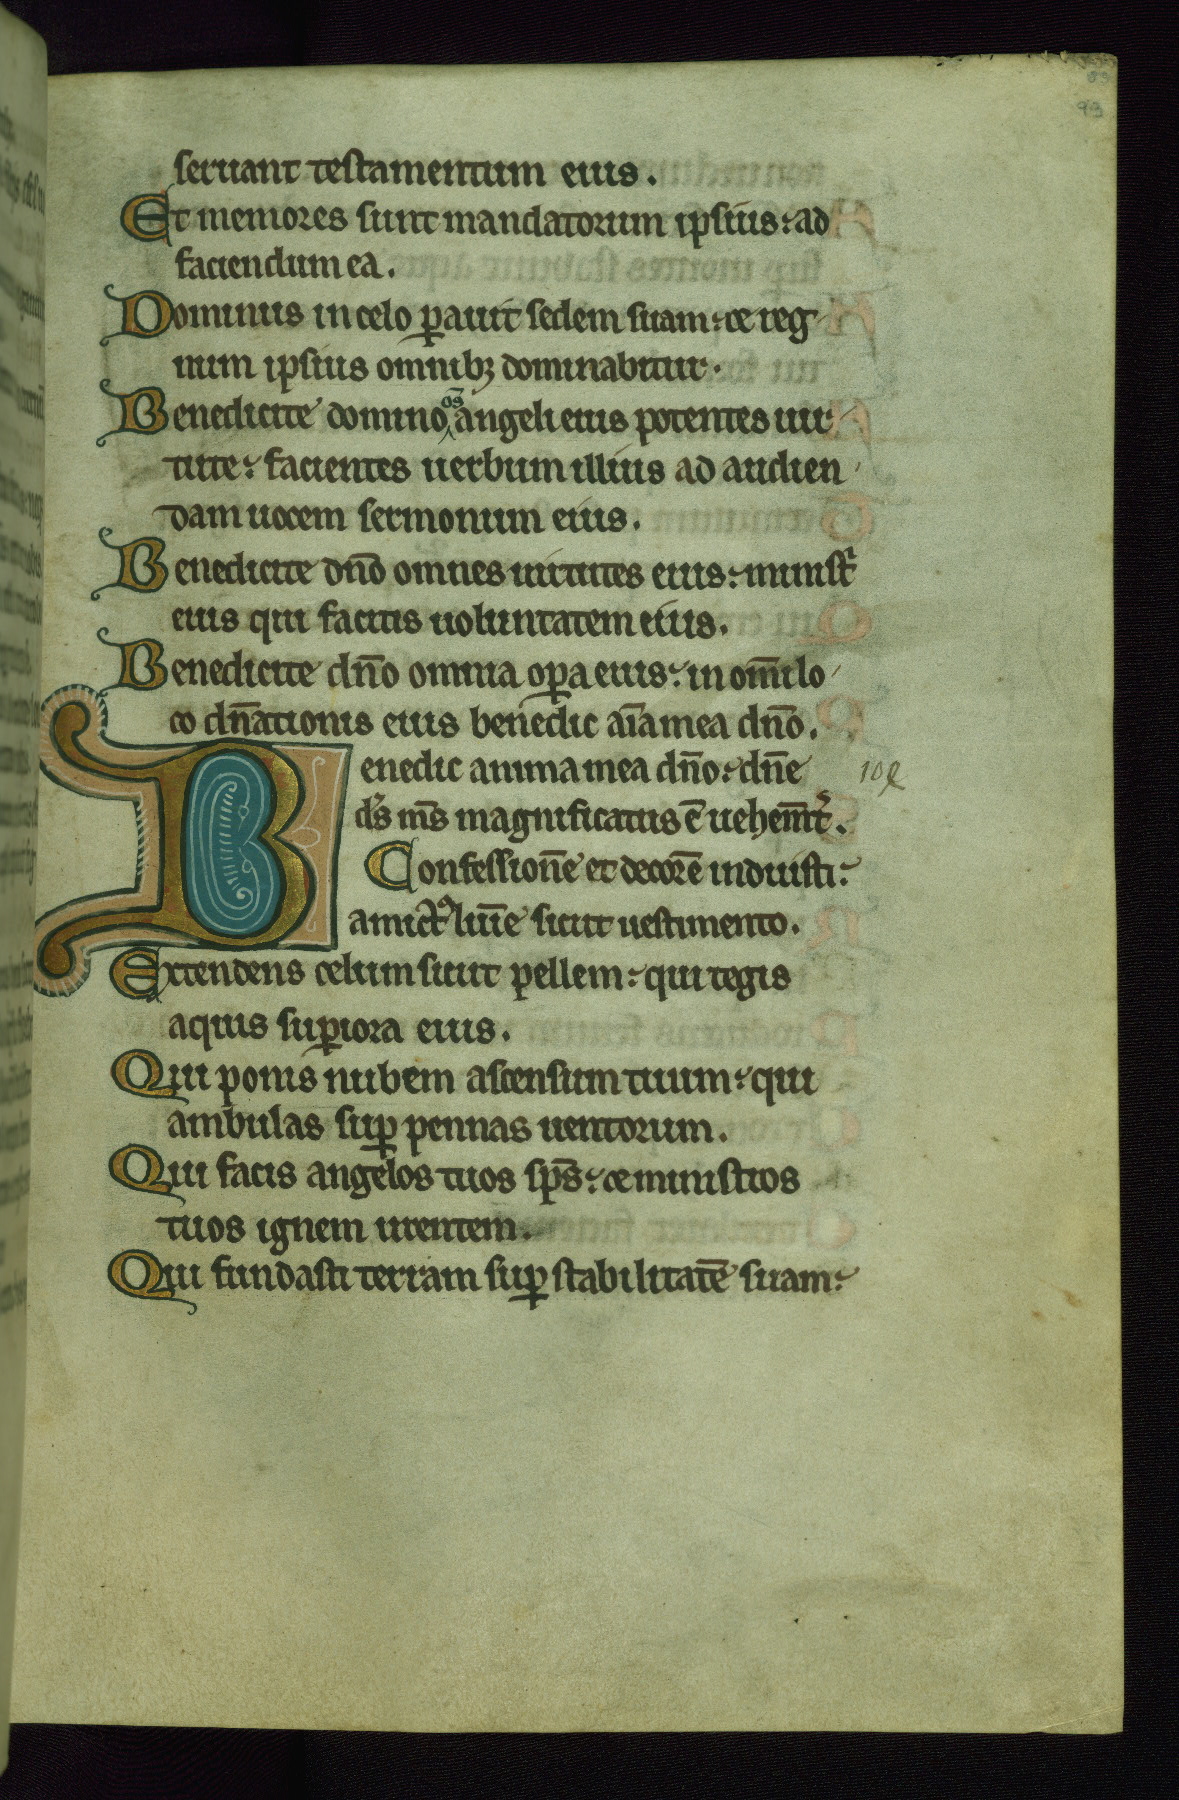 93
seruant testamentum eius.
Et memores sunt mandatorum ipsius: ad
faciendum ea.
Dominus in celo ꝑauit sedem suam: et reg
num ipsius omnibꝫ dominabitur.
Benedicite domino om̄s angeli eius potentes uir
tute: facientes uerbum illius ad audien
dam uocem sermonum eius.
Benedicite dn̄o omnes uirtutes eius: ministͥ
eius qui facitis uoluntatem eius.
Benedicite dn̄o omnia oꝑa eius: in om̄i lo
co dn̄ationis eius benedic aīa mea dn̄o.
Benedic anima mea dn̄o: dn̄e
ds̄ ms̄ magnificatus ē uehem̄t᷑.
Confession̄e et decorē induisti:
amictꝰ lum̄e sicut uestimento.
Extendens celum sicut pellem: qui tegis
aquis suꝑiora eius.
Qui ponis nubem ascensum tuum: qui
ambulas suꝑ pennas uentorum.
Qui facis angelos tuos sps̄: et ministros
tuos ignem urentem.
Qui fundasti terram suꝑ stabilitatē suam: